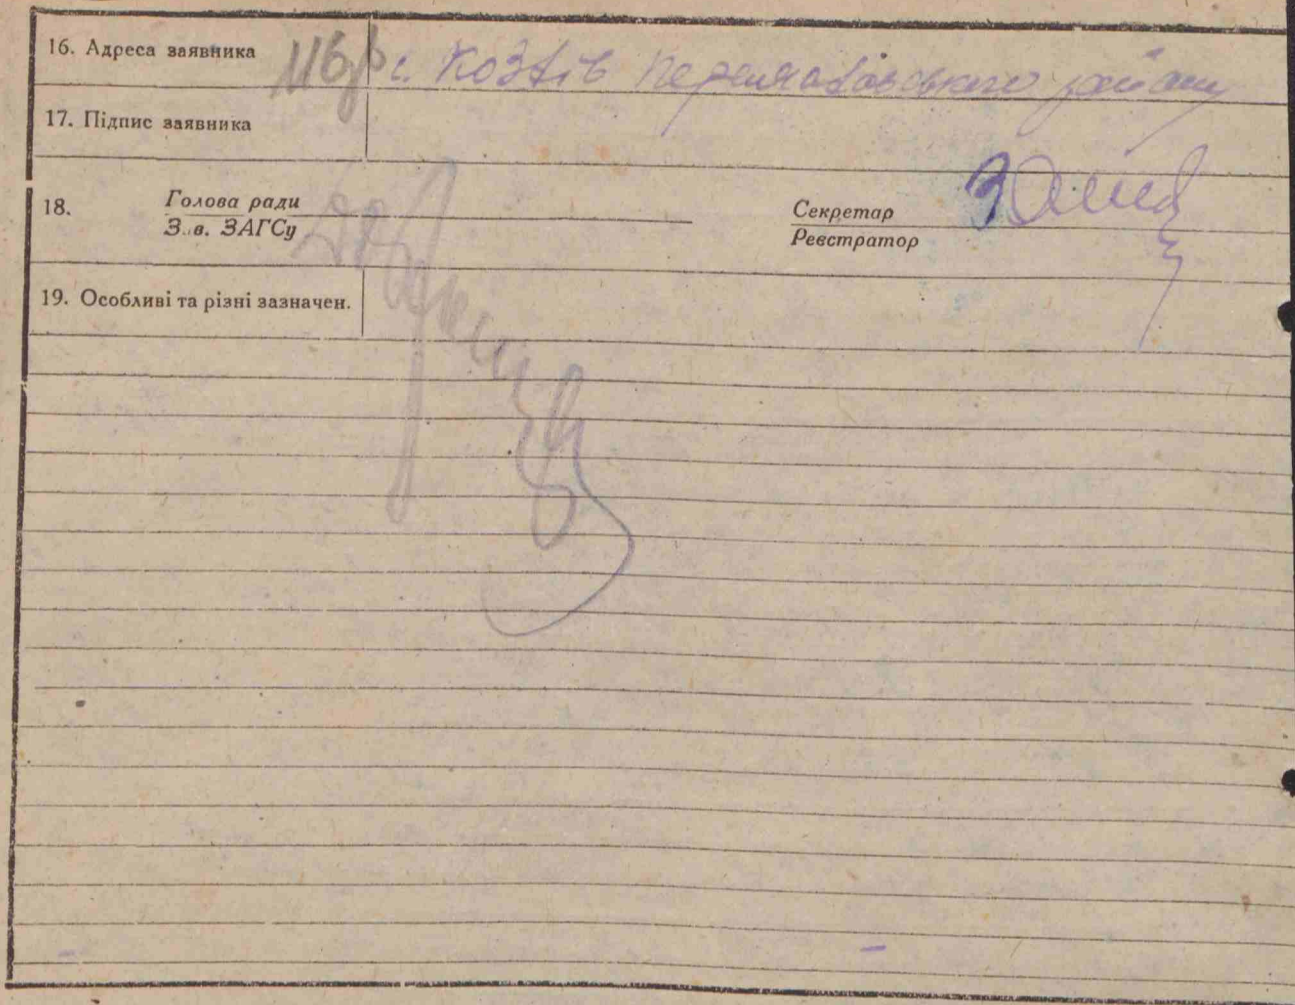 16. Адреса заявника с. Козлів Перемоловського району
17. Підпис заявника
18. Голова ради Секретар
З.в. ЗАГСу Реєстратор
19. Особливі та різні зазначен.